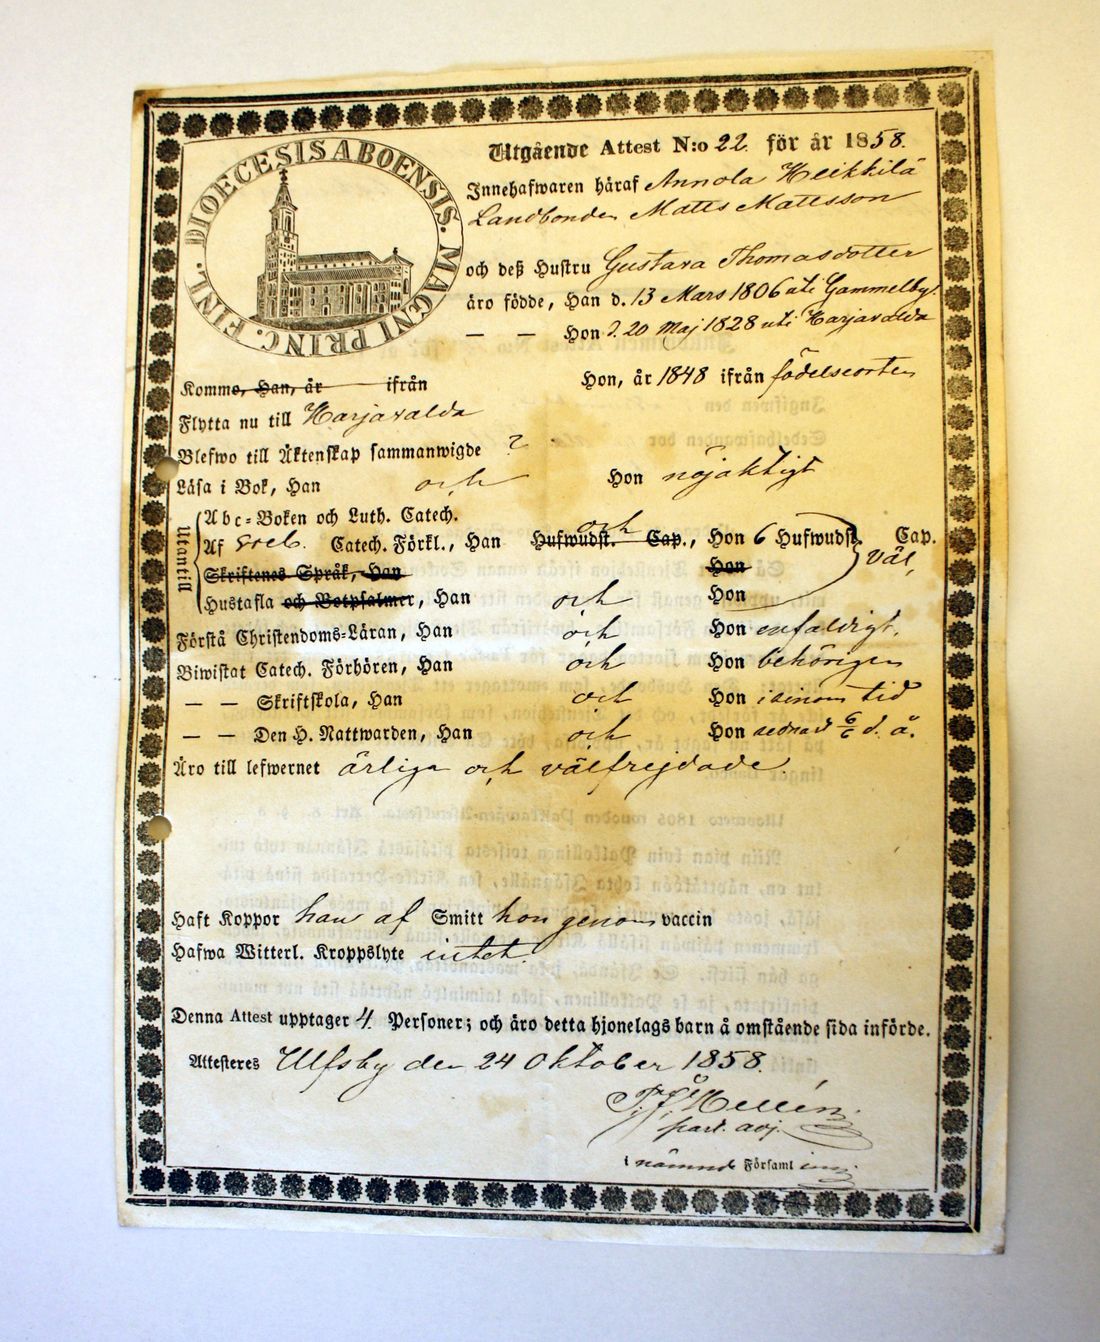 DIOECESIS ABOENSIS. MAGNI PRINC. FINL.
Utgående Attest N:o 22. för år 1858.
Innehafwaren häraf Annola Heikkilä
Landbonden Matts Mattsson
och deß Hustru Gustava Thomasdotter
äro födde, Han d. 13 Mars 1806 uti Gammelby.
— — Hon d. 20 Maj 1828 uti Harjavalda
Komme, Han, år ifrån Hon, år 1848 ifrån födelseorten
Flytta nu till Harjavalda
Blefwo till Äktenskap sammanwigde ?
Läsa i Bok, Han och Hon nöjaktigt
Utantill
Abc-Boken och Luth. Catech.
Af Catech. Förkl., Han Hufwudst. Cap., och Hon 6 Hufwudst. Cap.
Skriftenes Språk, Han Hon Väl,
Hustafla och Botpsalmer, Han och Hon
Förstå Christendoms-Läran, Han och Hon enfaldigt.
Biwistat Catech. Förhören, Han och Hon behörigen
— — Skriftskola, Han och Hon i sinom tid
— — Den H. Nattwarden, Han och Hon sednast 6/6 d. å.
Äro till lefwernet ärliga och välfrejdade.
Haft Koppor han af Smitt hon genom vaccin
Hafwa Witterl. Kroppslyte intet.
Denna Attest upptager 4 Personer; och äro detta hjonelags barn å omstående sida införde.
Attesteres Ulfsby den 24 Oktober 1858.
Hellén
past. adj.
i nämnde Församl